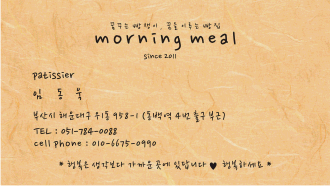 꿈꾸는 빵쟁이, 꿈을 이루는 빵집
morning meal
since 2011
patissier
임 동 욱
부산시 해운대구 우1동 958-1 (동백역 4번 출구 부근)
TEL : 051-784-0088
cell phone : 010-6675-0990
* 행복은 생각보다 가까운 곳에 있답니다 ♥ 행복하세요 *